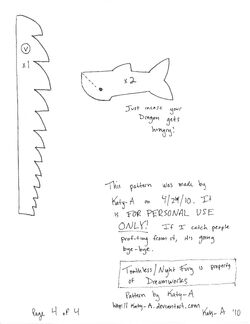 V
x1
x2
Just incase your
Dragon gets
hungry!
This pattern was made by
Katy-A on 4/24/10. It
is FOR PERSONAL USE
ONLY! If I catch people
profiting from it, its going
bye-bye.
Toothless/Night Fury is property
of Dreamworks
Pattern by Katy-A
http://Katy-A.deviantart.com
Page 4 of 4
Katy-A '10